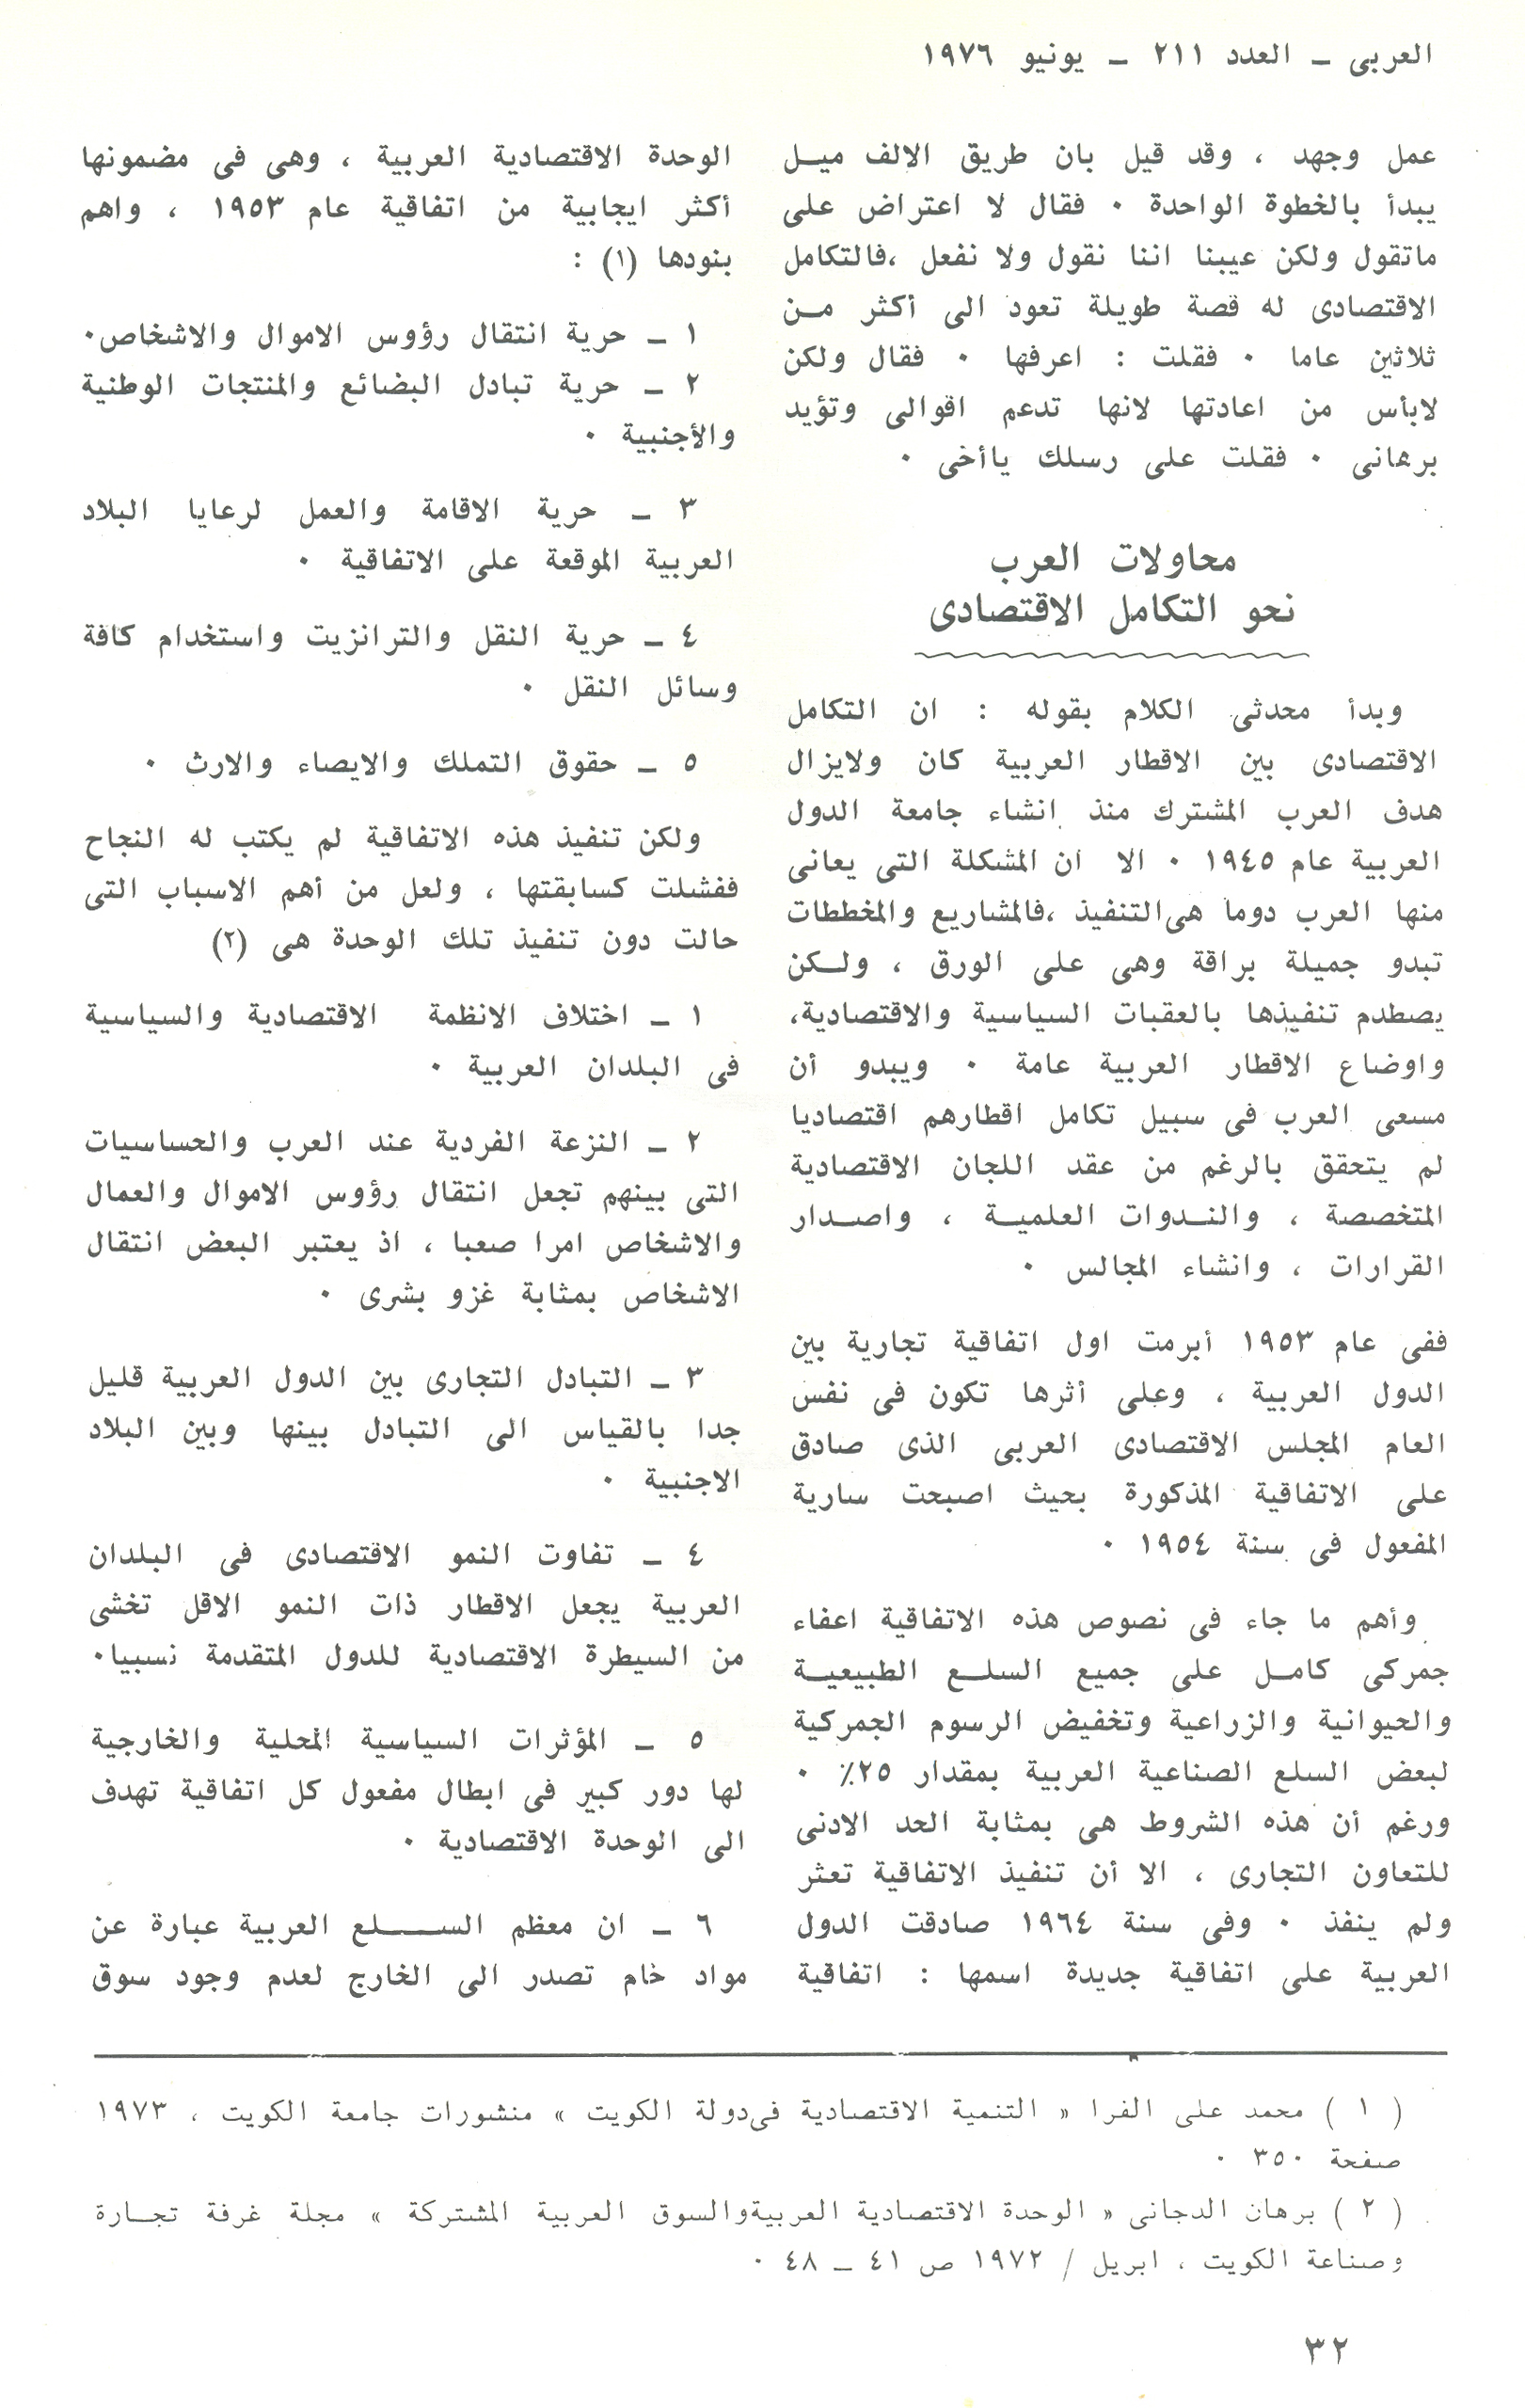 العربى ــ العدد ٢١١ ــ يونيو ١٩٧٦
عمل وجهد ، وقد قيل بان طريق الالف ميـل
يبدأ بالخطوة الواحدة ٠ فقال لا اعتراض على
ماتقول ولكن عيبنا اننا نقول ولا نفعل ،فالتكامل
الاقتصادى له قصة طويلة تعود الى أكثر مـن
ثلاثين عاما ٠ فقلت : اعرفها ٠ فقال ولكن
لابأس من اعادتها لانها تدعم اقوالى وتؤيد
برهانى ٠ فقلت على رسلك ياأخى ٠
محاولات العرب
نحو التكامل الاقتصادى
وبدأ محدثى الكلام بقوله : ان التكامل
الاقتصادى بين الاقطار العربية كان ولايزال
هدف العرب المشترك منذ انشاء جامعة الدول
العربية عام ١٩٤٥ ٠ الا ان المشكلة التى يعانى
منها العرب دوما هىالتنفيذ ،فالمشاريع والمخططات
تبدو جميلة براقة وهى على الورق ، ولـكن
يصطدم تنفيذها بالعقبات السياسية والاقتصادية،
واوضاع الاقطار العربية عامة ٠ ويبدو أن
مسعى العرب فى سبيل تكامل اقطارهم اقتصاديا
لم يتحقق بالرغم من عقد اللجان الاقتصادية
المتخصصة ، والنـدوات العلميـة ، واصـدار
القرارات ، وانشاء المجالس ٠
ففى عام ١٩٥٣ أبرمت اول اتفاقية تجارية بين
الدول العربية ، وعلى أثرها تكون فى نفس
العام المجلس الاقتصادى العربى الذى صادق
على الاتفاقية المذكورة بحيث اصبحت سارية
المفعول فى سنة ١٩٥٤ ٠
وأهم ما جاء فى نصوص هذه الاتفاقية اعفاء
جمركى كامـل على جميع السلـع الطبيعيـة
والحيوانية والزراعية وتخفيض الرسوم الجمركية
لبعض السلع الصناعية العربية بمقدار ٢٥٪ ٠
ورغم أن هذه الشروط هى بمثابة الحد الادنى
للتعاون التجارى ، الا أن تنفيذ الاتفاقية تعثر
ولم ينفذ ٠ وفى سنة ١٩٦٤ صادقت الدول
العربية على اتفاقية جديدة اسمها : اتفاقية
الوحدة الاقتصادية العربية ، وهى فى مضمونها
أكثر ايجابية من اتفاقية عام ١٩٥٣ ، واهم
بنودها (١) :
١ ــ حرية انتقال رؤوس الاموال والاشخاص٠
٢ ــ حرية تبادل البضائع والمنتجات الوطنية
والأجنبية ٠
٣ ــ حرية الاقامة والعمل لرعايا البلاد
العربية الموقعة على الاتفاقية ٠
٤ ــ حرية النقل والترانزيت واستخدام كافة
وسائل النقل ٠
٥ ــ حقوق التملك والايصاء والارث ٠
ولكن تنفيذ هذه الاتفاقية لم يكتب له النجاح
ففشلت كسابقتها ، ولعل من أهم الاسباب التى
حالت دون تنفيذ تلك الوحدة هى (٢)
١ ــ اختلاف الانظمة الاقتصادية والسياسية
فى البلدان العربية ٠
٢ ــ النزعة الفردية عند العرب والحساسيات
التى بينهم تجعل انتقال رؤوس الاموال والعمال
والاشخاص امرا صعبا ، اذ يعتبر البعض انتقال
الاشخاص بمثابة غزو بشرى ٠
٣ ــ التبادل التجارى بين الدول العربية قليل
جدا بالقياس الى التبادل بينها وبين البلاد
الاجنبية ٠
٤ ــ تفاوت النمو الاقتصادى فى البلدان
العربية يجعل الاقطار ذات النمو الاقل تخشى
من السيطرة الاقتصادية للدول المتقدمة نسبيا٠
٥ ــ المؤثرات السياسية المحلية والخارجية
لها دور كبير فى ابطال مفعول كل اتفاقية تهدف
الى الوحدة الاقتصادية ٠
٦ ــ ان معظم الســـلع العربية عبارة عن
مواد خام تصدر الى الخارج لعدم وجود سوق
( ١ ) محمد على الفرا « التنمية الاقتصادية فىدولة الكويت » منشورات جامعة الكويت ، ١٩٧٣
صفحة ٣٥٠ ٠
( ٢ ) برهان الدجانى « الوحدة الاقتصادية العربيةوالسوق العربية المشتركة » مجلة غرفة تجـارة
وصناعة الكويت ، ابريل / ١٩٧٢ ص ٤١ ــ ٤٨ ٠
٣٢